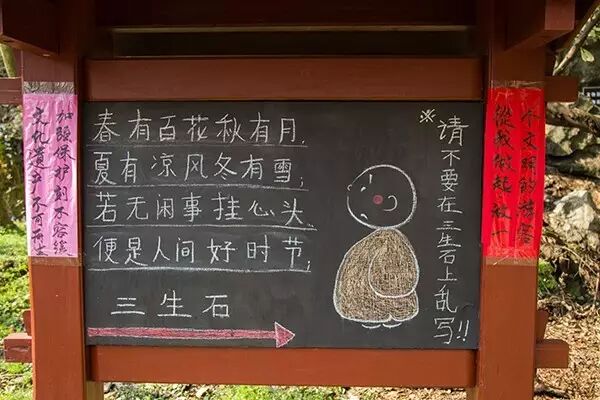 文化遗产不可再
加强保护刻不容缓
春有百花秋有月,
夏有凉风冬有雪;
若无闲事挂心头、
便是人间好时节;
三生石
※请不要在三生石上乱写!!
從我做起做一
个文明的